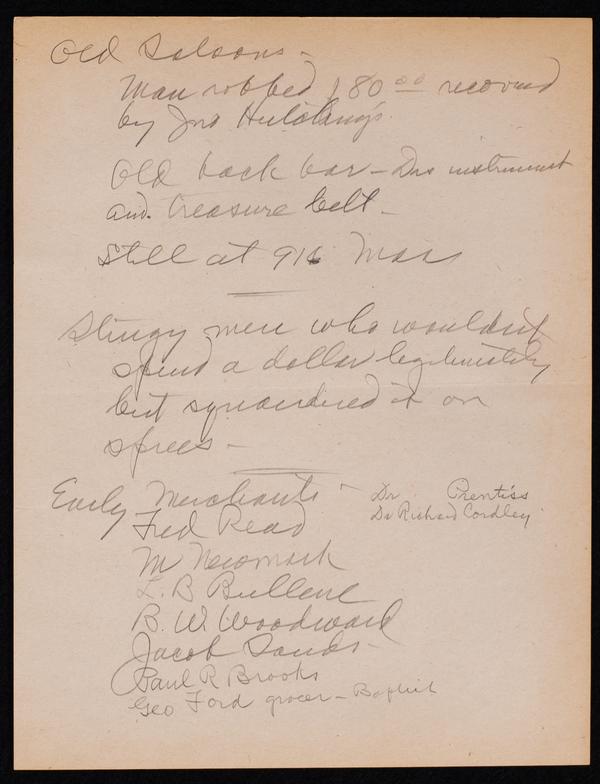 Old Saloons -
Man robbed $80 00 recovered
by Jno Hutchings.
Old back bar - Drs instrument
and. treasure belt -
Still at 916 Mass
Stingy men who wouldn't
spend a dollar legitimately
but squandered it on
sprees -
Early Merchants -
Dr Prentiss
Dr Richard Cordley
Fred Read
M Newmark
L. B Bullene
B. W. Woodward
Jacob Sands -
Paul R Brooks
Geo Ford grocer - Baptist